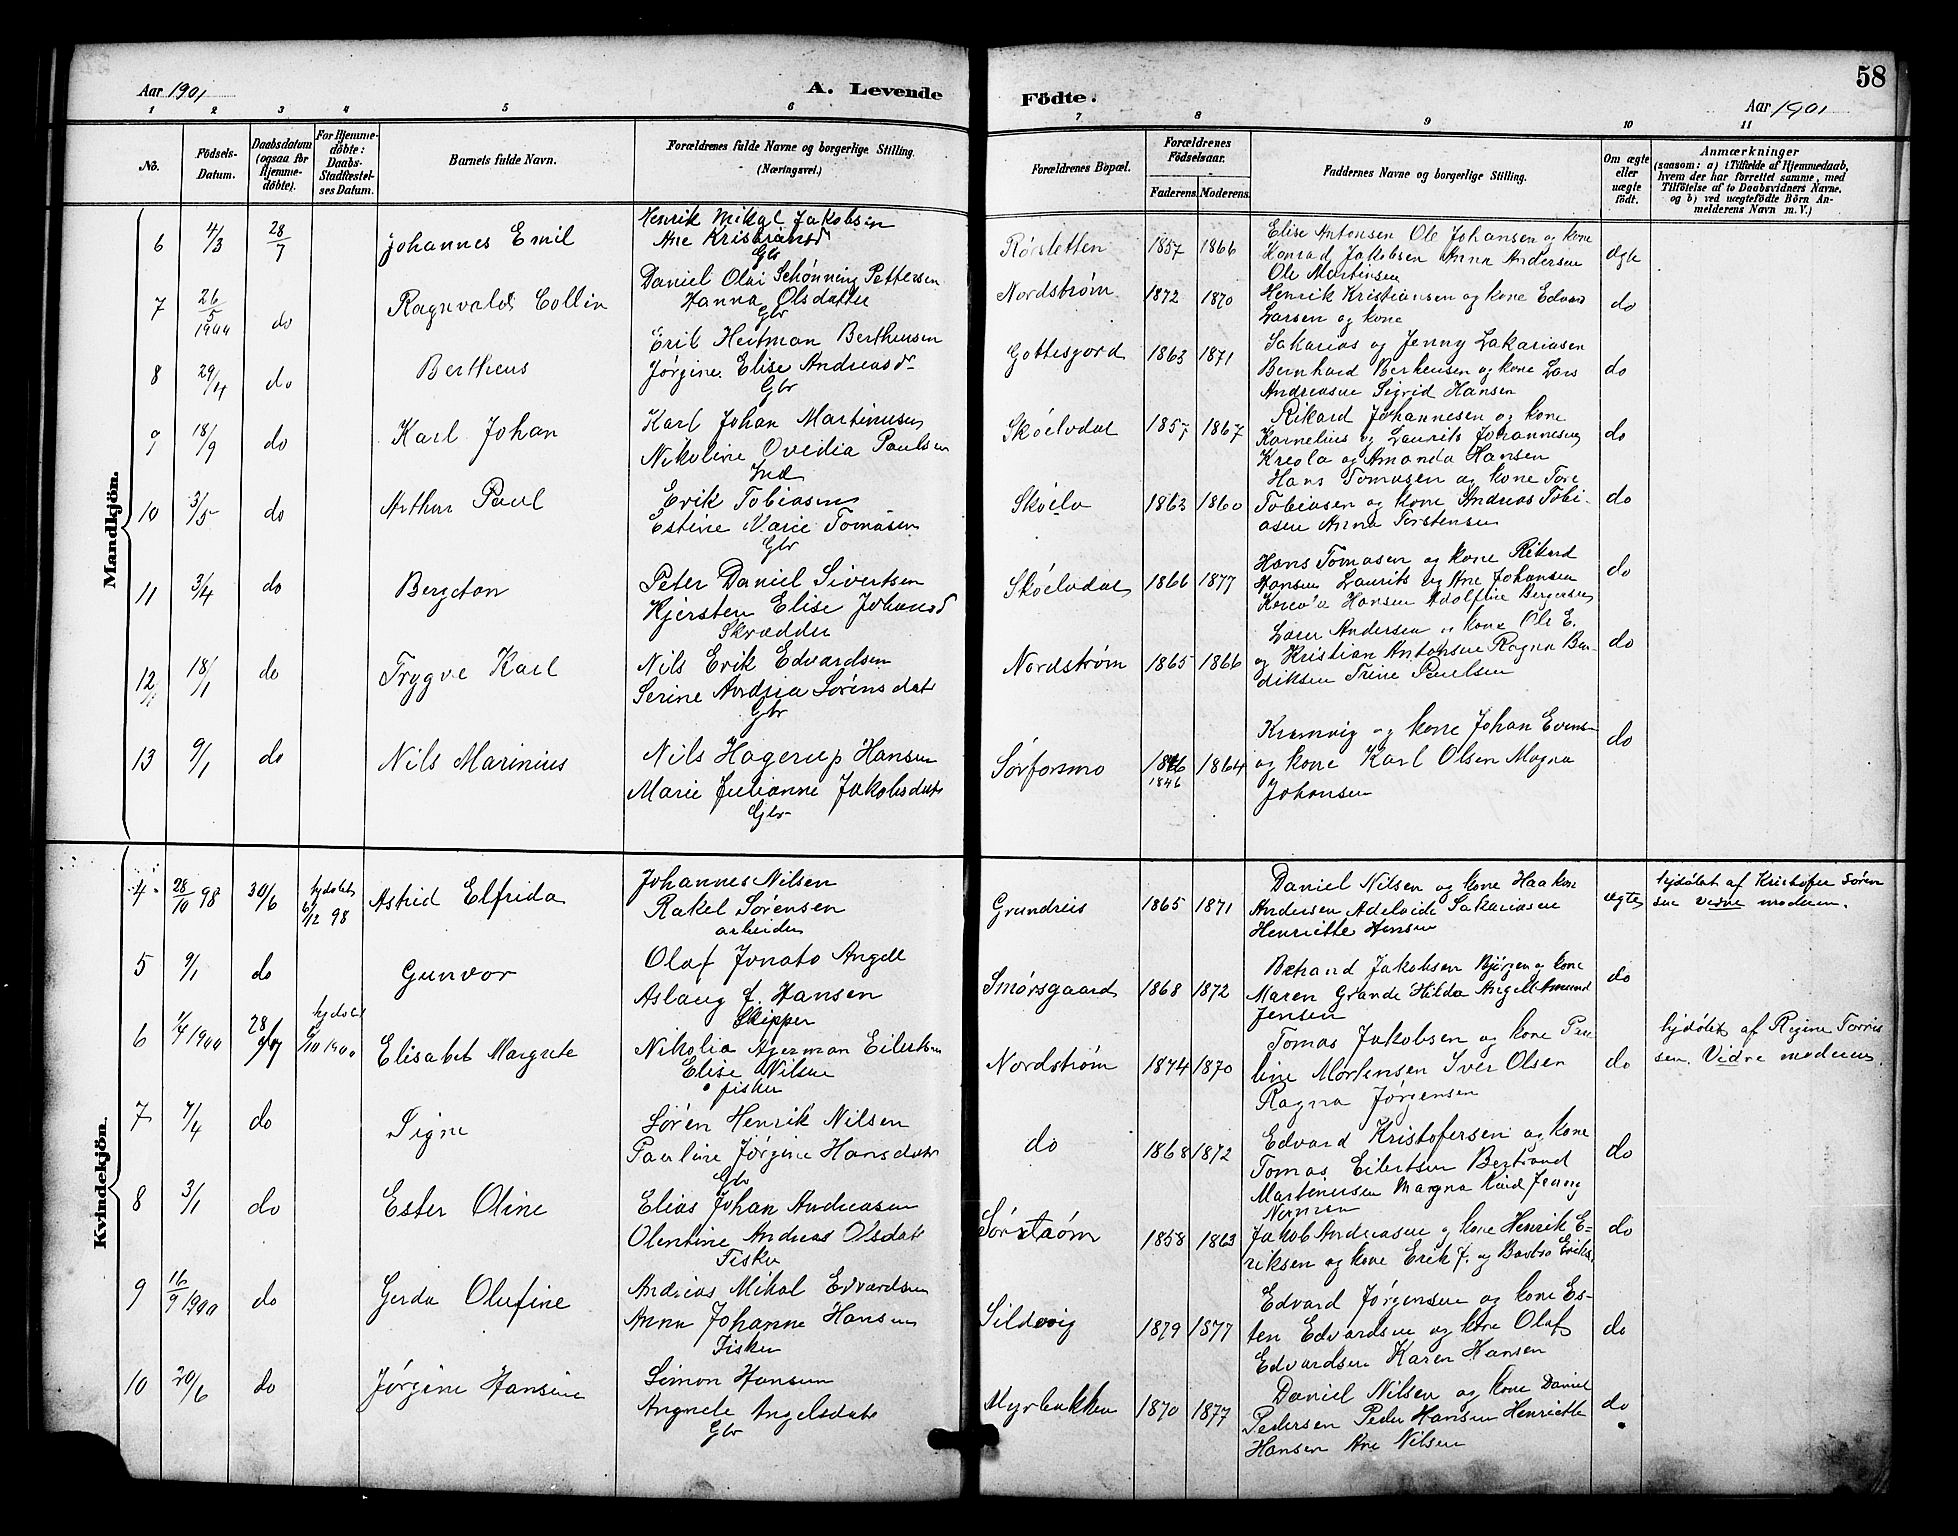 58
Aar 1901
A. Levende
Födte.
Aar 1901
1 2 3 4 5 6 7 8 9 10 11
No.
Födsels-Datum.
Daabsdatum (ogsaa for Hjemme-döbte).
For Hjemme-döbte: Daabs-Stadfæstel-ses Datum.
Barnets fulde Navn.
Forældrenes fulde Navne og borgerlige Stilling.
(Næringsvei.)
Forældrenes Bopæl.
Forældrenes Födselsaar.
Faderens. Moderens.
Faddernes Navne og borgerlige Stilling.
Om ægte eller uægte födt.
Anmærkninger
(saasom: a) i Tilfælde af Hjemmedaab,
hvem der har forrettet samme, med
Tilföielse af to Daabsvidners Navne.
og b) ved uægtefödte Börn An-
melderens Navn m. V.)
Mandkjön.
6 4/3 28/7 Johannes Emil
Henrik Mikal Jakobsen
Ane Kristiansd
Gbr
Rørstetten 1857 1866
Elise Antonsen Ole Johansen og kone
Konrad Jakobsen Anna Andersen
Ole Martinsen
ægte
7 26/5 1900 do Ragnvald Collin
Daniel Olai Schønning Pettersen
Hanna Olsdatter
Gbr
Nordstrøm 1872 1870
Henrik Kristiansen og kone Edvar
Larsen og kone
do
8 29/4 do Bertheus
Erik Heitman Bertheusen
Jørgine Elise Andreasdr
Gbr
Gottesgord 1863 1871
Sakarias og Jenny Zakariasen
Bernhard Bertheusen og kone Lars
Andreasen Sigrid Hansen
do
9 18/9 do Karl Johan
Karl Johan Martinusen
Nikoline Ovedia Paulsen
Ind
Skoelvdal 1857 1867
Rikard Johannesen og kone
Kornelius og Laurits Johannesen
Kreola og Amanda Hansen
do
10 3/5 do Arthur Paul
Erik Tobiasen
Estine Marie Tomasen
Gbr
Skoelv 1863 1860
Hans Tomasen og kone Tore
Tobiasen og kone Andreas Tobi-
asen Anna Torstensen
do
11 3/4 do Bergeton
Peter Daniel Sivertsen
Kjersten Elise Johansd
Skrædder
Skoelvdal 1866 1877
Hans Tomasen og kone Rikard
Hansen Laurits og Ane Johansen
Hansen Adolfine Bergersen
do
12 18/1 do Trygve Karl
Nils Erik Edvardsen
Serine Andrea Sørensdatr
Gbr
Nordstrøm 1865 1866
Andersen og kone Ole E.
og Kristian Antonsen Ragna Ben
diksen Trine Paulsen
do
13 9/1 do Nils Marinius
Nils Hagerup Hansen
Marie Julianne Jakobsdatr
Gbr
Sørforsmo 1846 1864
Kramvig og kone Johan Evens-
og kone Karl Olsen Magna
Johansen
do
Kvindekjön.
4 28/10 98 30/6 hjdøbt 6/12 98 Astrid Elfrida
Johannes Nilsen
Rakel Sørensen
arbeider
Grundreis 1865 1871
Daniel Nilsen og kone Haakon
Andersen Adelaide Sakariasen
Henriette Hansen
ægte
hjdøbt af Kristofer Søren
sen vidne moderen.
5 9/1 do Gunvor
Olaf Jonato Angell
Aslaug f. Hansen
Skipper
Smørsgaard 1868 1872
Jakobsen Bjørgen og kone
Maren Grande Hilda Angell Amund
Jensen
do
6 1/4 1900 28/7 hjdøbt 6/10 1900 Elisabet Margrete
Nikolia Agerman Eilertsen
Elise Nilsen
fisker
Nordstrøm 1874 1870
Tomas Jakobsen og kone Pau
line Mortensen Iver Olsen
Ragna Jørgensen
do
hjdøbt af Regine Torris
sen. Vidne moderen.
7 7/4 do Signe
Søren Henrik Nilsen
Pauline Jørgine Hansdatr
Gbr
do 1868 1872
Edvard Kristofersen og kone
Tomas Eilertsen Bertrand
Martinusen Magna Jenny
do
8 3/1 do Ester Oline
Elias Johan Andreasen
Olentine Andrea Olsdatr
Fisker
Sørstrøm 1858 1863
Jakob Andreasen og kone Henrik E-
riksen og kone Erik f. og Barbro Eriks.
do
9 16/9 1900 do Gerda Olufine
Andreas Mikal Edvardsen
Anna Johanne Hansen
Fisker
Sildvig 1879 1877
Edvard Jørgensen og kone Es-
ten Edvardsen og kone Olaf
Edvardsen Karen Hansen
do
10 20/6 do Jørgine Hansine
Simon Hansen
Angnete Angelsdatr
Gbr
Myrbakken 1870 1877
Daniel Nilsen og kone Daniel
Pedersen Peder Hansen Henriette
Hansen Ane Nilsen
do